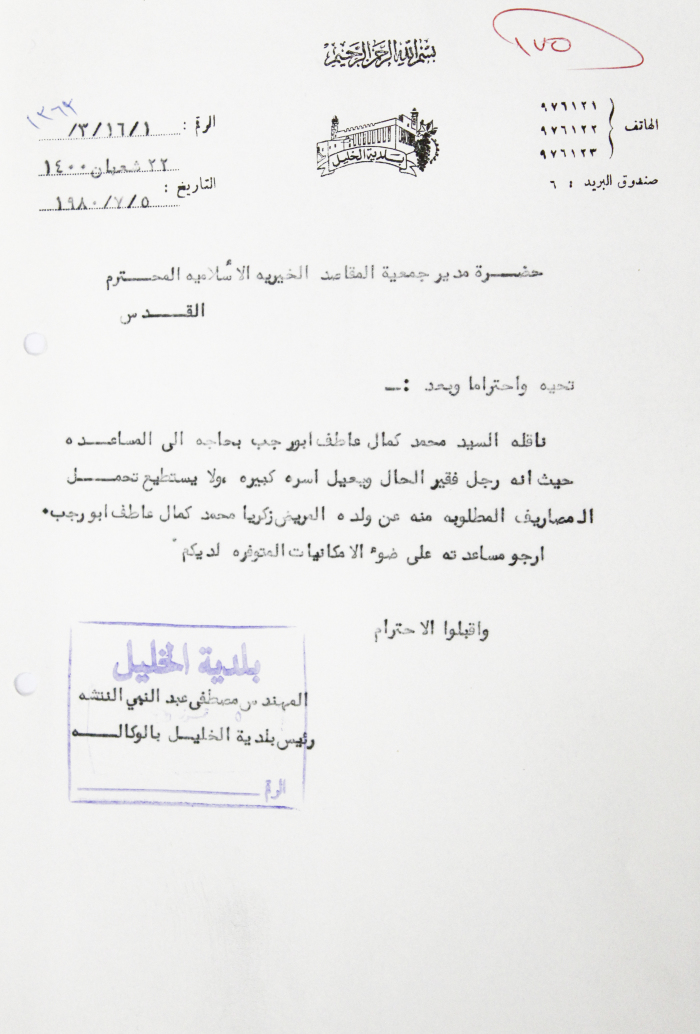 ١٧٥
بسم الله الرحمن الرحيم
الهاتف
٩٧٦١٢١
٩٧٦١٢٢
٩٧٦١٢٣
صندوق البريد : ٦
بلدية الخليل
١٣٦٢
الرقم : ٣/١٦/١/
٢٢ شعبان ١٤٠٠
التاريخ :
١٩٨٠/٧/٥
حضـــرة مدير جمعية المقاصد الخيريه الاسلاميه المحـــترم
القـــدس
تحيه واحتراما وبعد :ــ
ناقله السيد محمد كمال عاطف ابورجب بحاجه الى المساعـــده
حيث انه رجل فقير الحال ويعيل اسره كبيره ،ولا يستطيع تحمـــل
المصاريف المطلوبه منه عن ولده المريض زكريا محمد كمال عاطف ابورجب.
ارجو مساعدته على ضوء الامكانيات المتوفره لديكم
واقبلوا الاحترام
بلدية الخليل
المهندس مصطفى عبد النبي النتشه
رئيس بلدية الخليـــل بالوكالـــه
الرقم